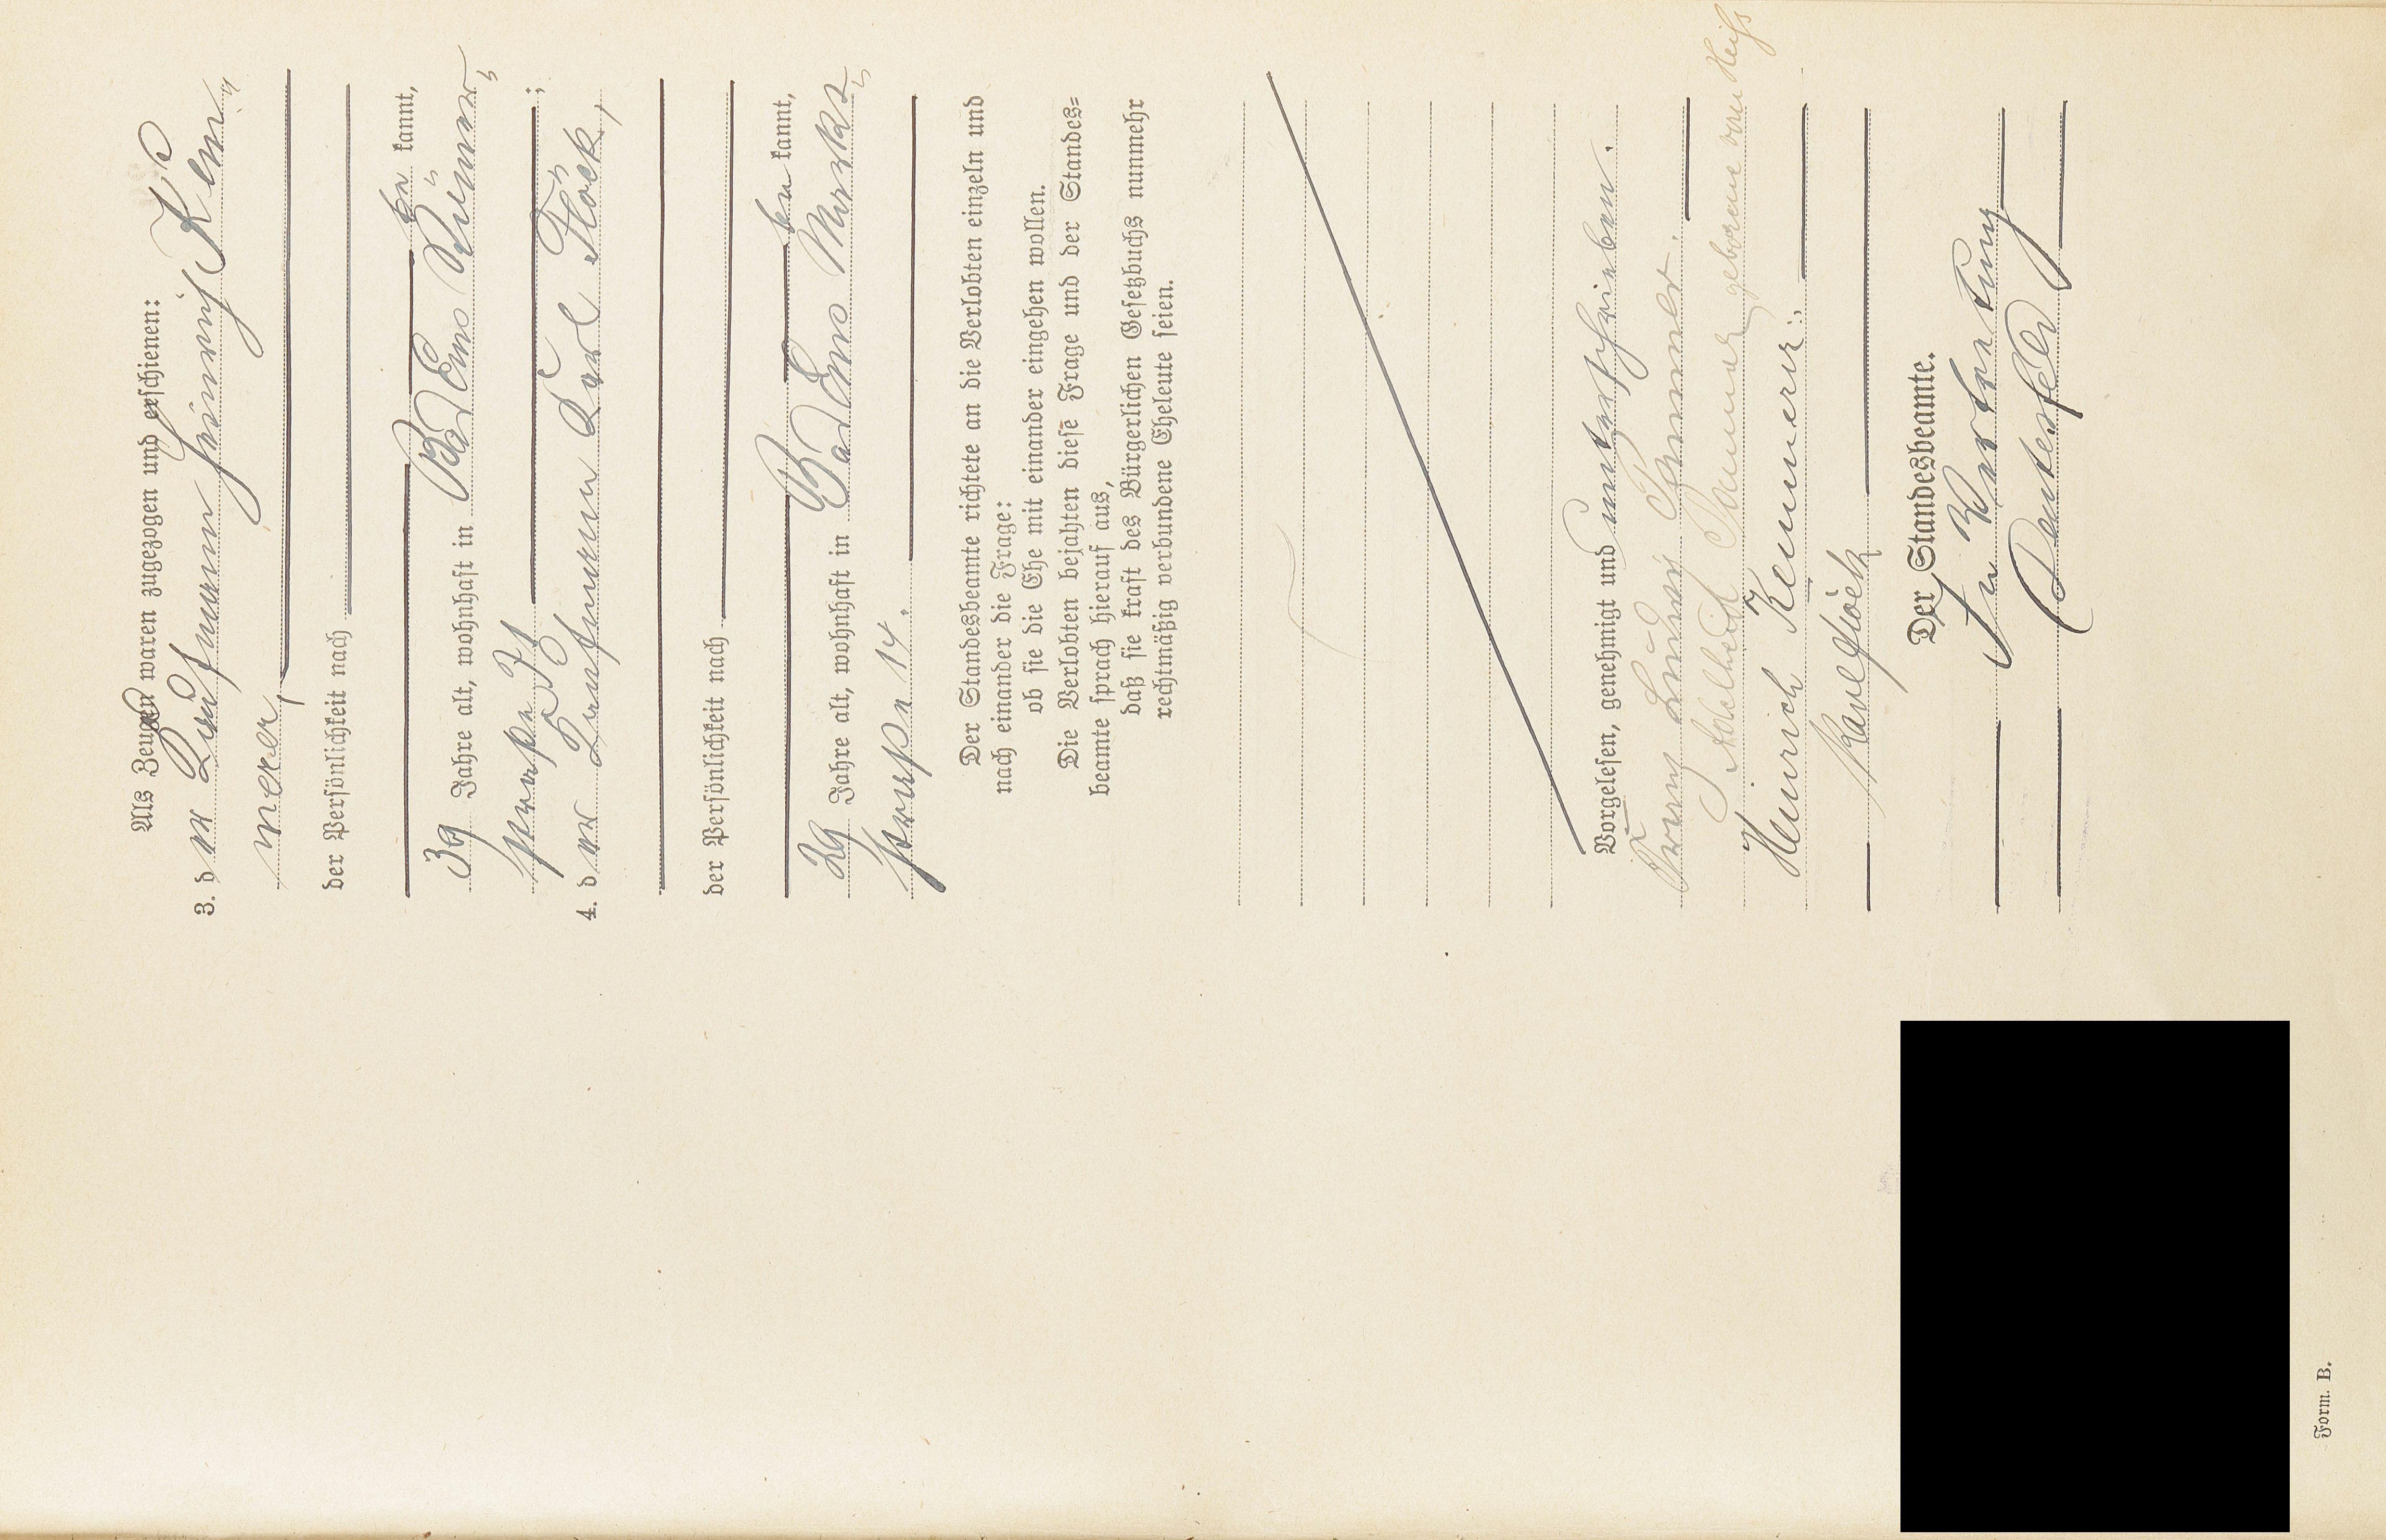 Als Zeugen waren zugezogen und erschienen:
3. der Kaufmann Heinrich Klem
merer,
der Persönlichkeit nach
be kannt,
39 Jahre alt, wohnhaft in Bad Ems Römer
straße 71 ;
4. der Kaufmann Karl Flöck,
der Persönlichkeit nach
be kannt,
29 Jahre alt, wohnhaft in Bad Ems Markt
straße 14.
Der Standesbeamte richtete an die Verlobten einzeln und
nach einander die Frage:
ob sie die Ehe mit einander eingehen wollen.
Die Verlobten bejahten diese Frage und der Standes=
beamte sprach hierauf aus,
daß sie kraft des Bürgerlichen Gesetzbuchs nunmehr
rechtmäßig verbundene Eheleute seien.
Vorgelesen, genehmigt und unterschrieben.
Franz
geborene von
Heinrich Klemmerer.
Karl Flöck
Der Standesbeamte.
In Vertretung
Form. B.